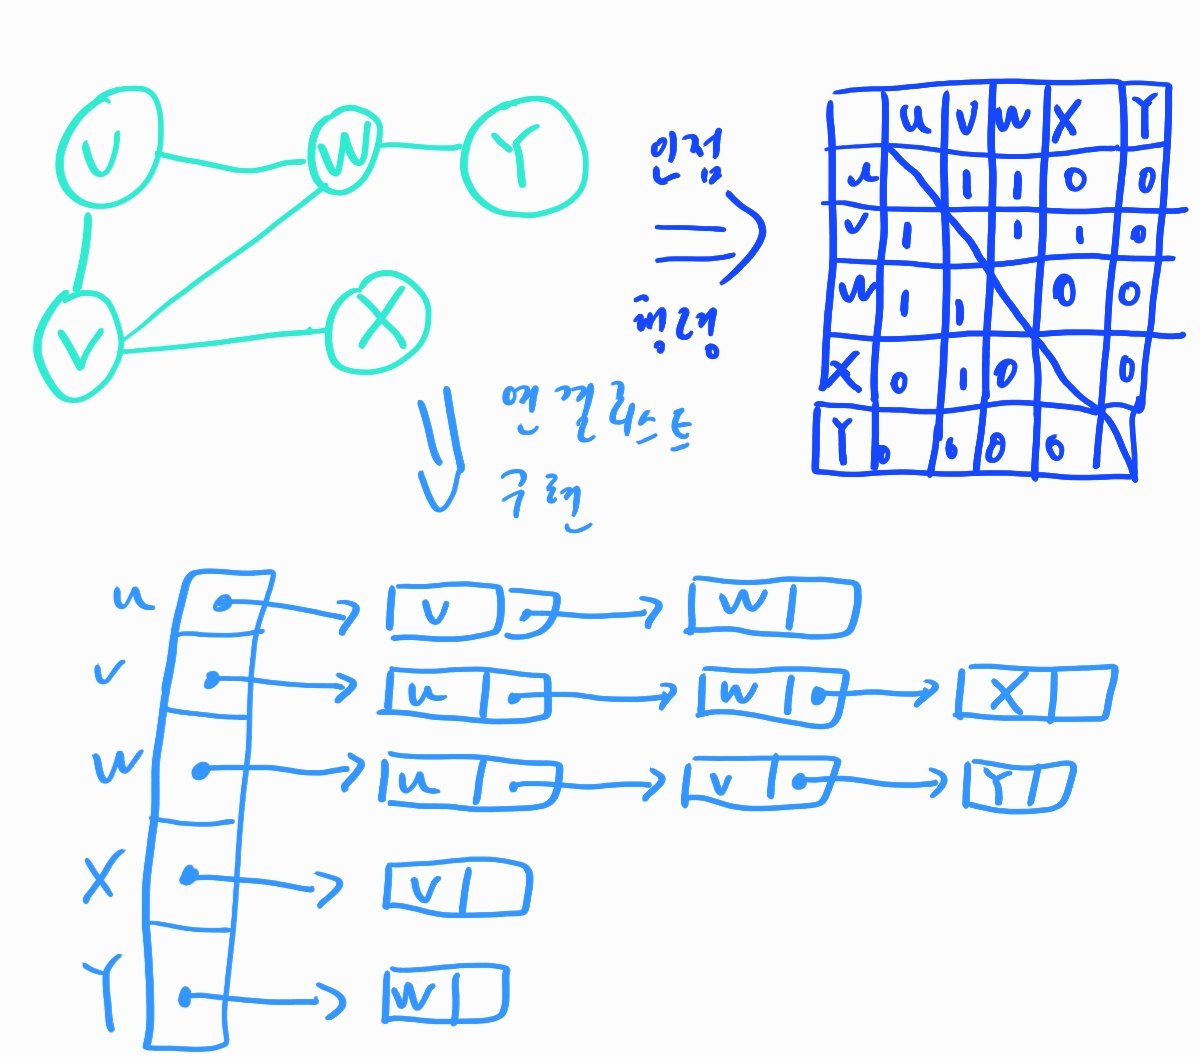 U W Y
V X
인접
행렬
u v w X Y
u 1 1 0 0
v 1 1 1 0
w 1 1 0 0
X 0 1 0 0
Y 0 0 0 0
연결리스트
구현
u v w
v u w X
w u v Y
X v
Y w